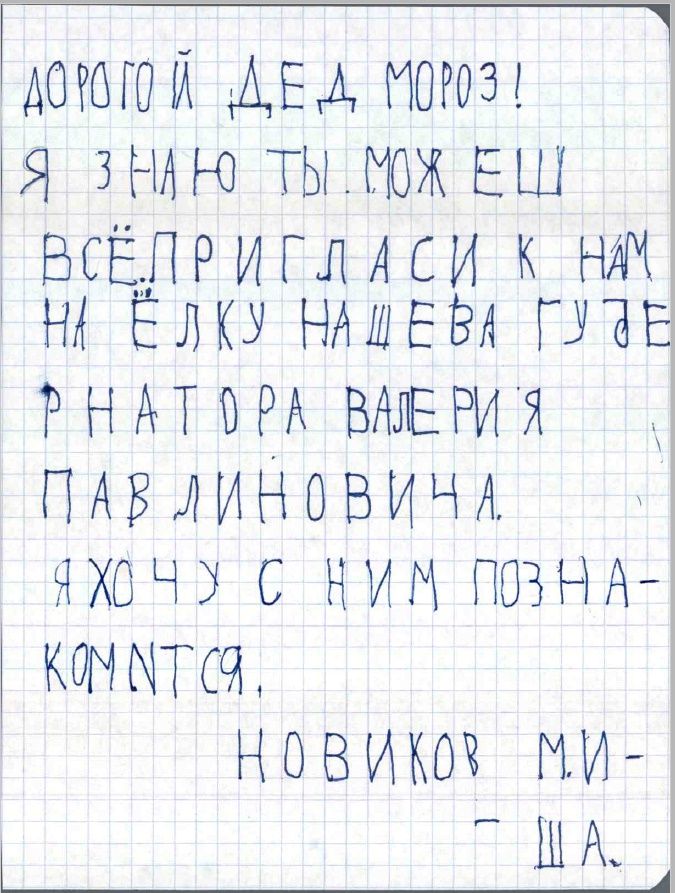 ДОРОГОЙ ДЕД МОРОЗ!
Я ЗНАЮ ТЫ.МОЖЕШ
ВСЁ.ПРИГЛАСИ К НАМ
НА ЁЛКУ НАШЕВА ГУБЕ
РНАТОРА ВАЛЕРИЯ
ПАВЛИНОВИЧА.
Я ХОЧУ С НИМ ПОЗНА-
КОМИТСЯ.
НОВИКОВ М.И-
- ША.